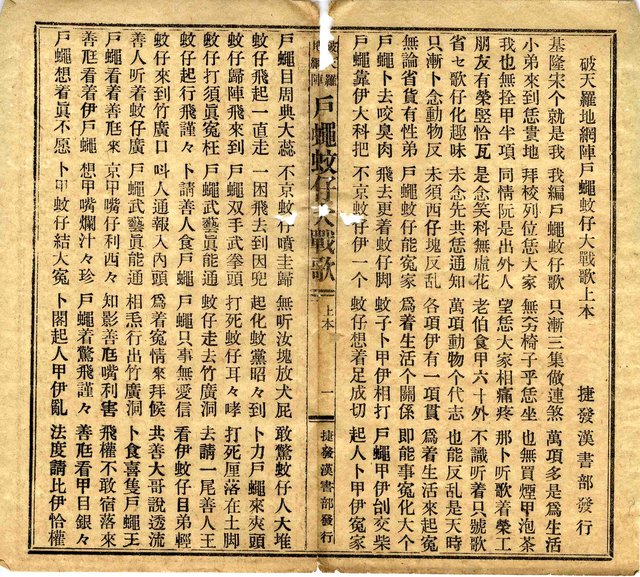 破天羅地網陣戶蠅蚊仔大戰歌上本　捷發漢書部發行
基隆宋个就是我　我編戶蠅蚊仔歌　只漸三集做連煞　萬項多是為生活
小弟來到恁貴地　拜校列位恁大家　無夯椅子乎恁坐　也無買煙甲泡茶
我也無拴甲半項　同情阮是出外人　望恁大家相痛疼　那卜听歌着榮工
朋友有榮堅恰瓦　是念笑科無虛花　老伯食甲六十外　不識听着只號歌
省ㄝ歌仔化趣味　未念先共恁通知　萬項動物个代志　也能反乱是天時
只漸卜念動物反　未須西仔塊反乱　各項伊有一項貫　為着生活來起冤
無論省貨有性弟　戶蠅蚊仔能冤家　為着生活个關係　即能事冤化大个
戶蠅卜去咬臭肉　飛去更着蚊仔脚　蚊子卜甲伊相打　戶蠅甲伊刣交柴
戶蠅靠伊大科把　不京蚊仔伊一个　蚊仔想着足成切　起人卜甲伊冤家
破天羅地網陣　戶蠅蚊仔大戰歌　上本　一　捷發漢書部發行
戶蠅目周典大蕊　不京蚊仔噴圭歸　無听汝塊放犬屁　敢驚蚊仔人大堆
蚊仔飛起一直走　一困飛去到因兜　起化蚊黨昭々到　卜力戶蠅來夾頭
蚊仔歸陣飛來到　戶蠅双手武拳頭　打死蚊仔耳々哮　打死厘落在土脚
蚊仔打須真冤枉　戶蠅武藝真能通　蚊仔走去竹廣洞　去請一尾善人王
蚊仔起行飛謹々　卜請善人食戶蠅　戶蠅只事無愛信　看伊蚊仔目弟輕
蚊仔來到竹廣口　叫人通報入內頭　為着冤情來拜候　共善大哥說透流
善人听着蚊仔廣　戶蠅武藝真能通　相㤀行出竹廣洞　卜食喜隻戶蠅王
戶蠅看着善尫來　京甲嘴仔利西々　知影善尫嘴利害　飛權不敢宿落來
善尫看着伊戶蠅　想甲嘴爛汁々珍　戶蠅着驚飛謹々　善尫看甲目銀々
戶蠅想着真不愿　卜甲蚊仔結大冤　卜閣起人甲伊亂　法度請比伊恰權